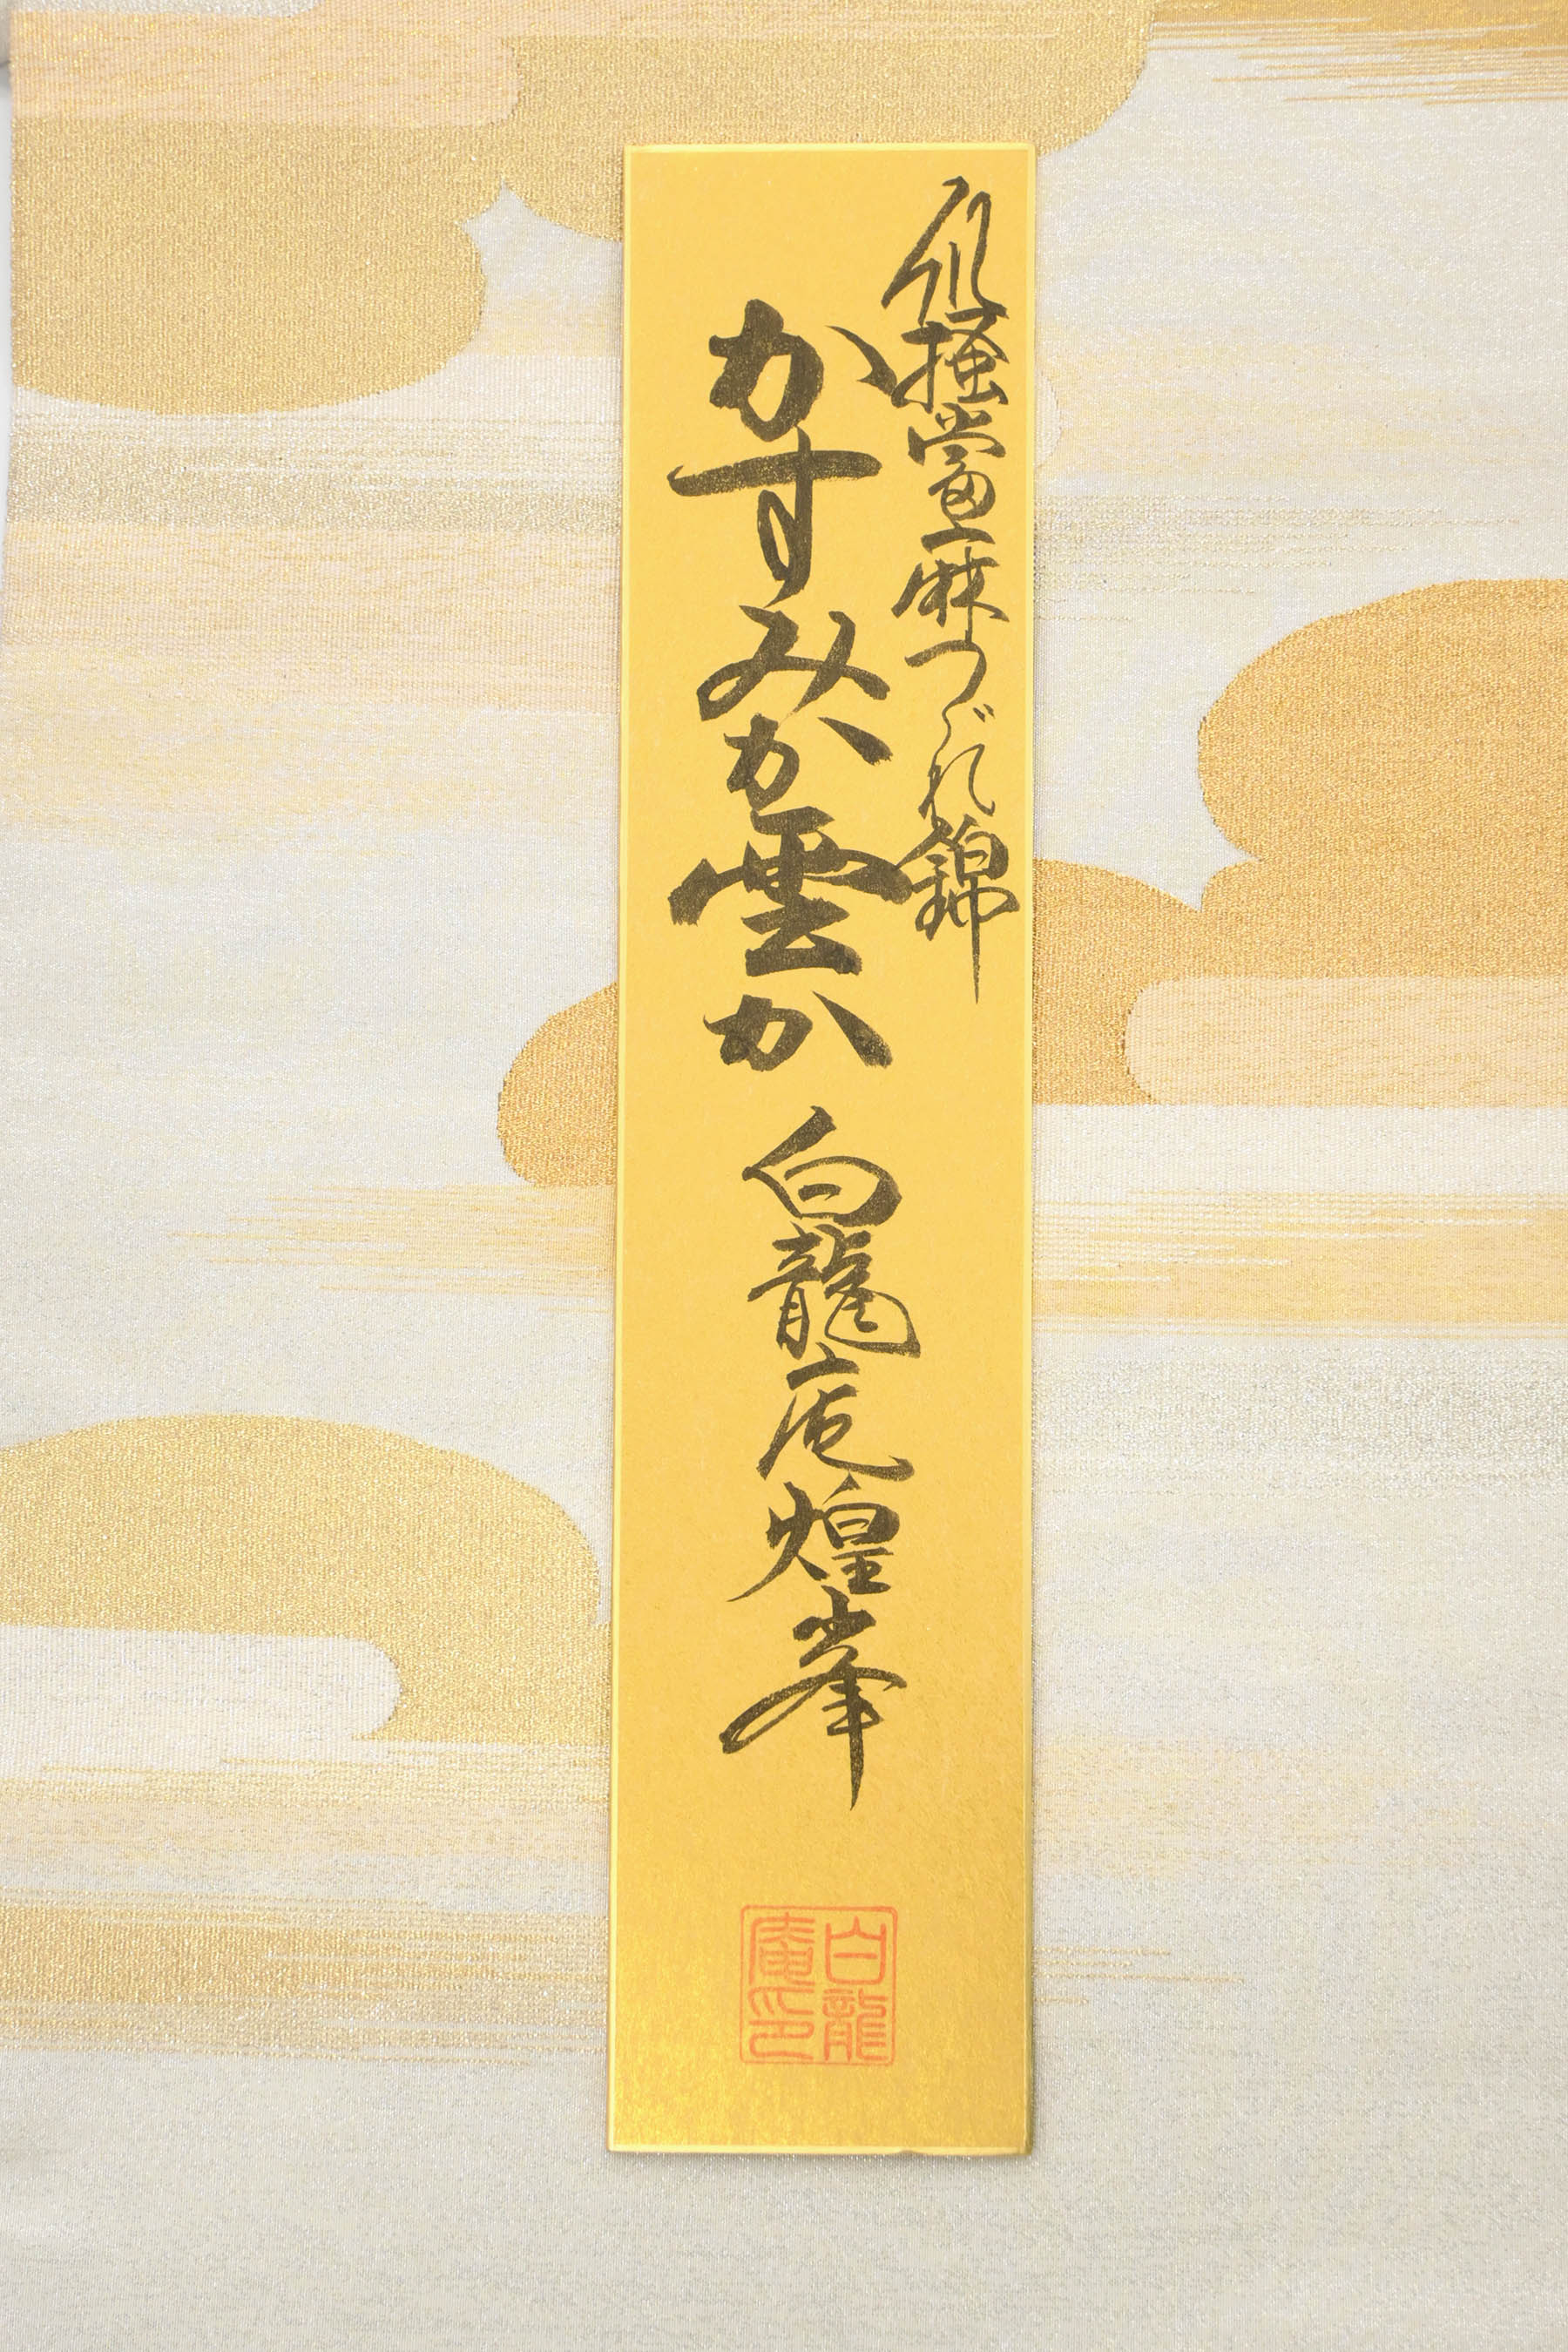 爪掻當麻つゞれ錦
かすみか雲か 白龍庵煌峯
白龍
庵印